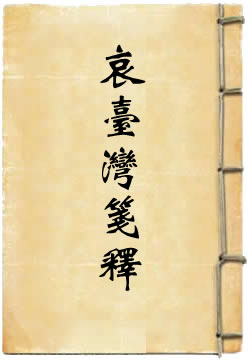 哀臺灣箋釋